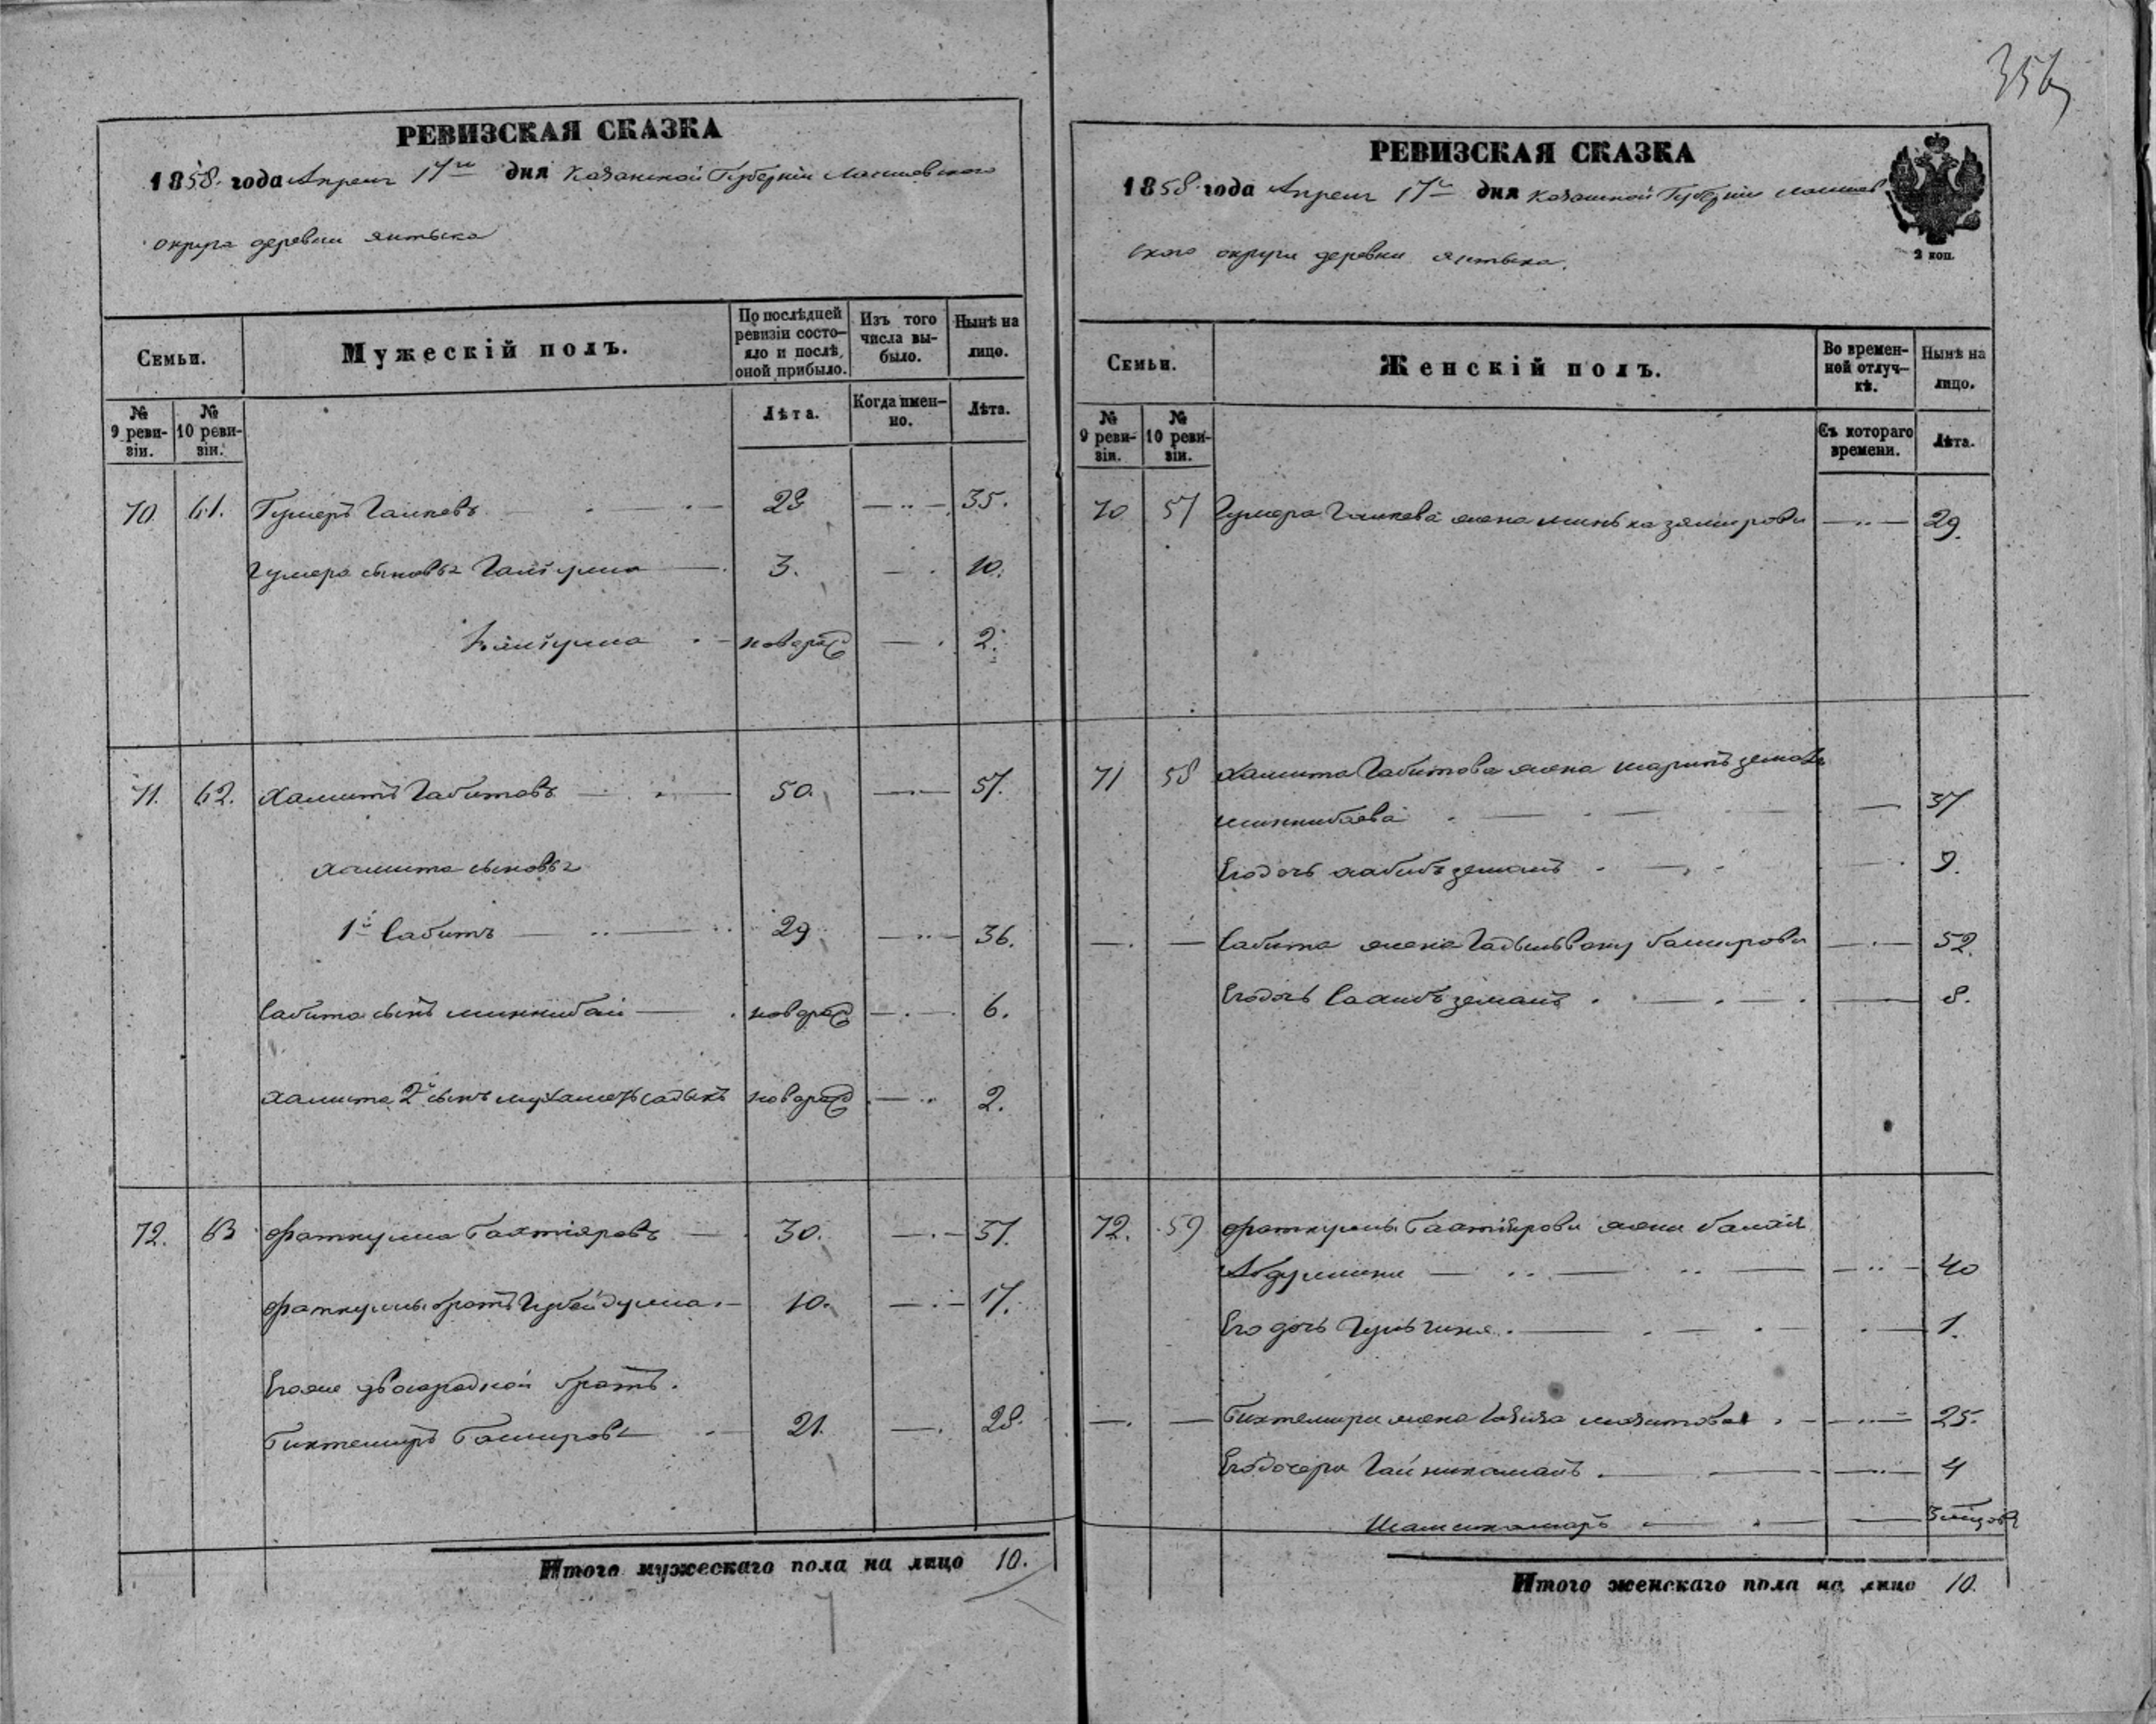 356
РЕВИЗСКАЯ СКАЗКА
1858. года Апреля 17го дня Казанской Губерніи Лаишевского
округа деревни Янтыка
Семьи.
Мужескій полъ.
По послѣдней ревизіи состо-
яло и послѣ оной прибыло.
Изъ того числа вы-
было.
Нынѣ на лицо.
№ 9 реви-
зіи.
№ 10 реви-
зіи.
Лѣта.
Когда имен-
но.
Лѣта.
70. 61. Гумеръ 28 35.
Гумера сыновья 3. 10.
новорож 2.
71. 62. Хамитъ Габитовъ 50. 57.
Хамита сыновья
1й Сабитъ 29 36.
Сабита сынъ Миннибай новорож 6.
Хамита 2й сынъ Мухаметъ Садыкъ новорож 2.
72. 63 Фаткулла Бахтіяровъ 30. 37.
Фаткуллы братъ Губейдулла 10. 17.
Егоже двоюродной братъ.
Биктемиръ Башировъ 21. 28.
Итого мужескаго пола на лицо 10.
РЕВИЗСКАЯ СКАЗКА
1858 года Апреля 17го дня Казанской Губерніи Лаишев
ского округа деревни Янтыка.
2 коп.
Семьи.
Женскій полъ.
Во времен-
ной отлуч-
кѣ.
Нынѣ на лицо.
№ 9 реви-
зіи.
№ 10 реви-
зіи.
Съ котораго времени.
Лѣта.
70 57 Гумера жена 29.
71 58 Хамита Габитова жена
Миннибаева 37
Его дочь Хабибъземалъ 9.
Сабита жена Баширова 52.
Его дочь Сахибъземалъ 8.
72. 59 Фаткуллы Бахтіярова жена
Абдуллина 40
Его дочь 1.
Биктемира жена 25.
Его дочери Гайникамалъ 4
Шамсикамаръ 3 мѣсяцовъ
Итого женскаго пола на лицо 10.